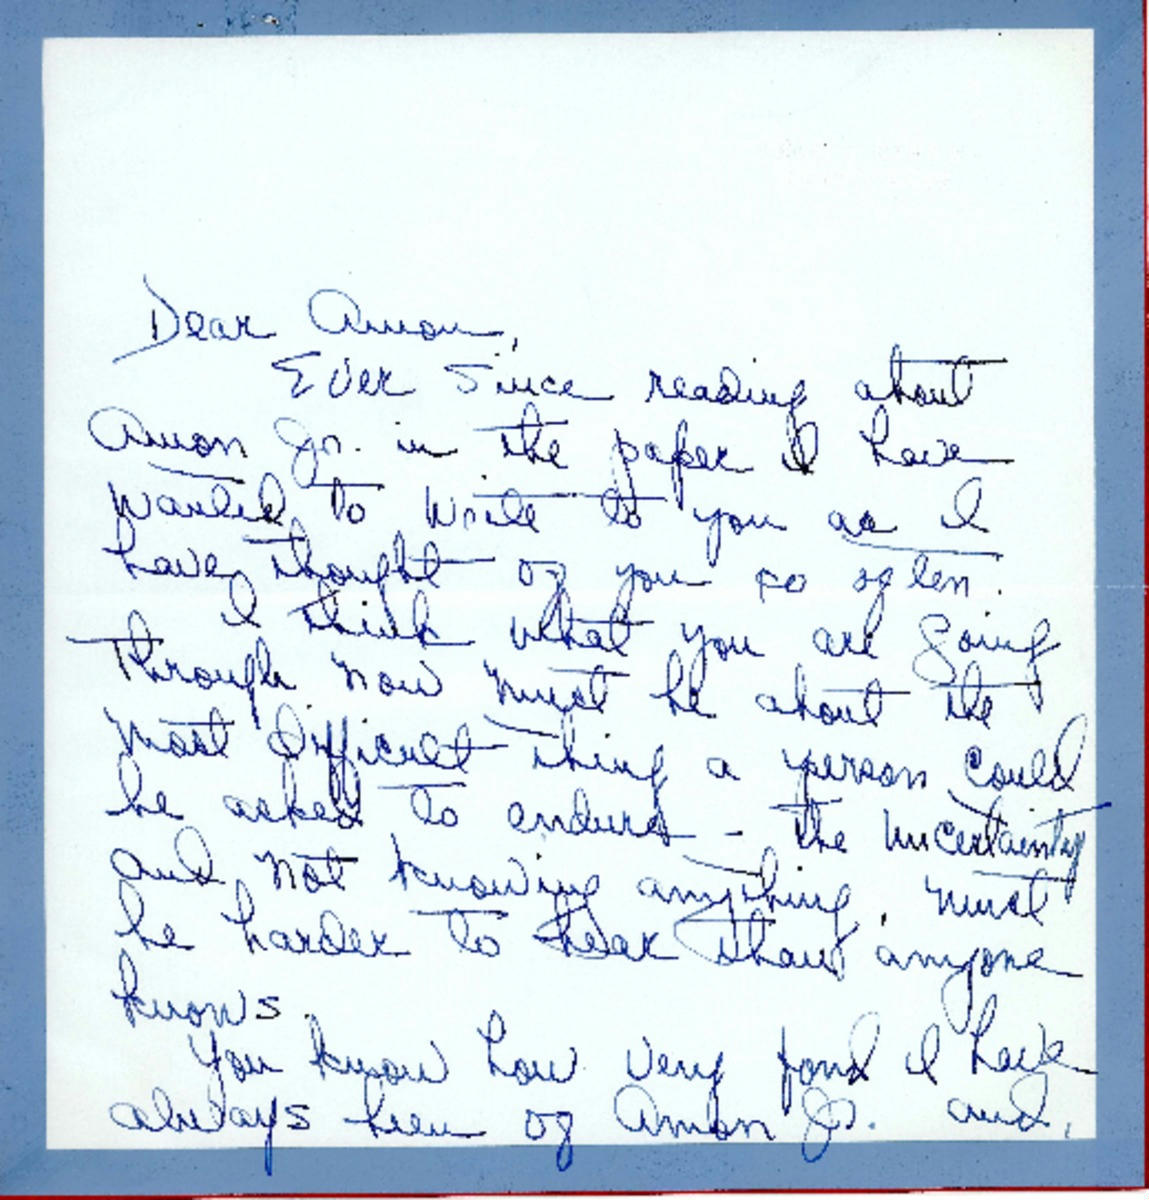 Dear Amon,
Ever since reading about
Amon Jr. in the paper I have
wanted to write to you as I
have thought of you so often.
I think what you are going
through now must be about the
most difficult thing a person could
be asked to endure - the uncertainty
and not knowing anything, must
be harder to bear than anyone
knows.
You know how very fond I have
always been of Amon Jr. and,